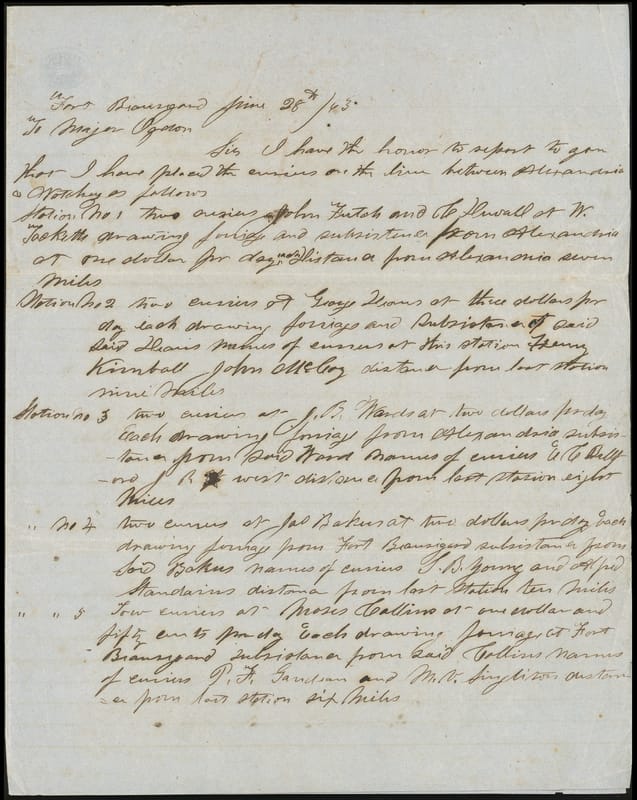 Fort Beauregard June 28th /63
To Major Ogdon
Sir I have the honor to report to you
that I have placed the curiers on the line between Alexandria
& Natchez as follows
Station No 1 two curiers John Futch and C Duvall at W.
Tacketts drawing forrige and subsistance from Alexandria
at one dollar pr day each Distance from Alexandria seven
Miles
Station No 2 two curiers at George at three dollars pr
day each drawing forrige and subsistance of said
said names of curiers at this station Henry
Kimball John McCoy distance from last station
nine Miles
Station no 3 two curiers at J. B. Wards at two dollars pr day
Each drawing forrige from Alexandria subsis-
-tance from said Ward names of curiers E C
J R west distance from last station eight
Miles
" No 4 two curiers at Jas Bakers at two dollars pr day Each
drawing forrige from Fort Beauregard subsistance from
said Bakers names of curiers T. B. Young and
distance from last station ten Miles
" " 5 Tow curiers at Moses Collins at one dollar and
fifty cents pr day Each drawing forrige at Fort
Beauregard subsistance from said Collins names
of curiers P. F. and M. V. Singliton distan
-ce from last station six Miles